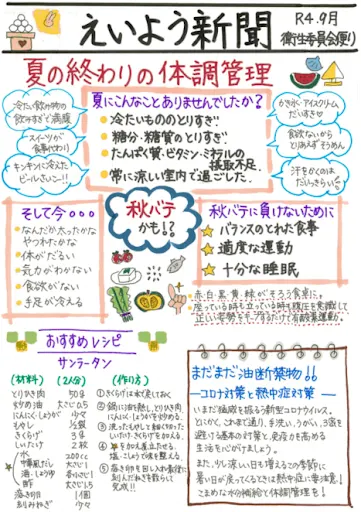 えいよう新聞
R4.9月
衛生委員会便り
夏の終わりの体調管理
冷たい飲み物の
飲みすぎで満腹
スイーツが
食事代わり
キンキンに冷えた
ビールさいこー!!
夏にこんなことありませんでしたか?
冷たいもののとりすぎ!
糖分・糖質のとりすぎ
たんぱく質・ビタミン・ミネラルの
摂取不足.
常に涼しい室内で過ごした.
かき氷・アイスクリーム
だいすき♡
食欲ないから
とりあえずそうめん
汗をかくのは
だいっきらい
そして今。。。
なんだか太ったかな
やつれたかな
体がだるい
気力がわかない
食欲がない
手足が冷える
秋バテ
かも!?
秋バテに負けないために
バランスのとれた食事
適度な運動
十分な睡眠
赤・白・黒・黄・緑がそろう食卓に。
座っている時も立っている時も腹圧を意識して
正しい姿勢をキープするだけで有酸素運動
おすすめレシピ
サンラータン
(材料) (2人分)
とりひき肉 50g
炒め油 大さじ0.5
にんにく・しょうが 少々
もやし
きくらげ 3個
しいたけ 2枚
水 200cc
中華風だし 大さじ1
酒・しょうゆ
酢 大さじ1.5
溶き卵 1個
ラー油
(作り方)
①きくらげは水で戻しておく
②鍋に油を熱し、とりひき肉
にんにく・しょうがを炒める.
③洗ったもやしと細く切った
しいたけ、きくらげを加える.
塩・こしょうで味を整える.
⑤溶き卵を回し入れ
完成!!
まだまだ油断禁物!!
―コロナ対策と熱中症対策―
いまだ猛威を振るう新型コロナウイルス。
とにかく、これまで通り、手洗い、うがい、3密を
避ける基本の対策と、免疫力を高める
生活を心がけましょう。
また、少し涼しい日も増えてきた季節に
暑い日が戻ってくるときは熱中症に要注意!
こまめな水分補給と体調管理を!